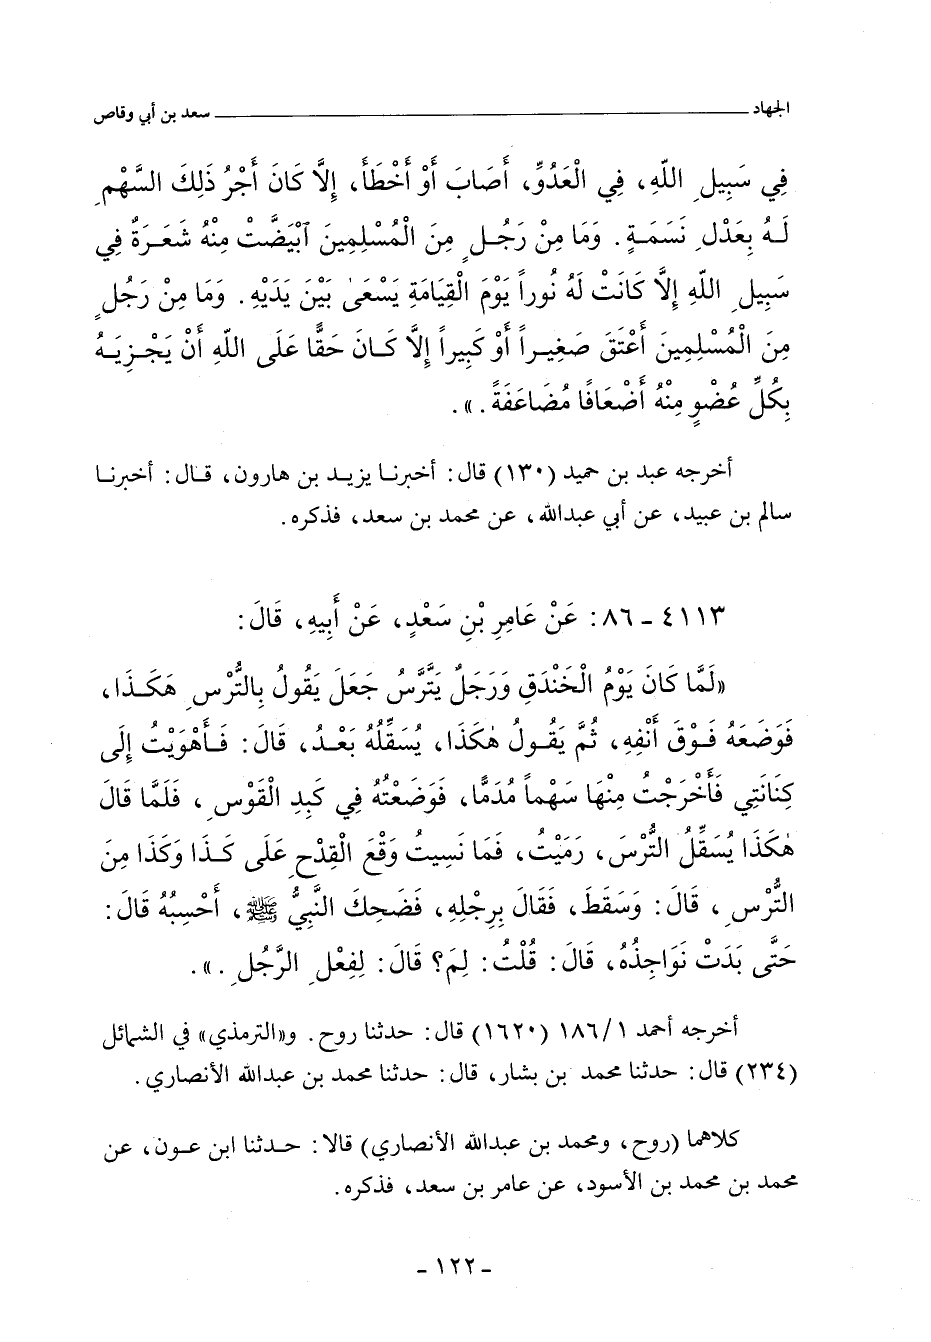 الجهاد ــــــــــ سعد بن أبي وقاص
فِي سَبِيلِ اللّهِ، فِي الْعَدُوِّ، أَصَابَ أَوْ أَخْطَأَ، إِلَّا كَانَ أَجْرُ ذَلِكَ السَّهْمِ
لَهُ بِعَدْلِ نَسَمَةٍ. وَمَا مِنْ رَجُلٍ مِنَ الْمُسْلِمِينَ ٱبْيَضَّتْ مِنْهُ شَعَرَةٌ فِي
سَبِيلِ اللّهِ إِلَّا كَانَتْ لَهُ نُوراً يَوْمَ الْقِيَامَةِ يَسْعَىٰ بَيْنَ يَدَيْهِ. وَمَا مِنْ رَجُلٍ
مِنَ الْمُسْلِمِينَ أَعْتَقَ صَغِيراً أَوْ كَبِيراً إِلَّا كَانَ حَقًّا عَلَى اللّهِ أَنْ يَجْزِيَهُ
بِكُلِّ عُضْوٍ مِنْهُ أَضْعَافًا مُضَاعَفَةً.».
أخرجه عبد بن حميد (١٣٠) قال: أخبرنا يزيد بن هارون، قال: أخبرنا
سالم بن عبيد، عن أبي عبدالله، عن محمد بن سعد، فذكره.
٤١١٣ - ٨٦: عَنْ عَامِرِ بْنِ سَعْدٍ، عَنْ أَبِيهِ، قَالَ:
«لَمَّا كَانَ يَوْمُ الْخَنْدَقِ وَرَجَلٌ يَتَّرَّسُ جَعَلَ يَقُولُ بِالتُّرْسِ هَكَذَا،
فَوَضَعَهُ فَوْقَ أَنْفِهِ، ثُمَّ يَقُولُ هٰكَذَا، يُسَفِّلُهُ بَعْدُ، قَالَ: فَأَهْوَيْتُ إِلَى
كِنَانَتِي فَأَخْرَجْتُ مِنْهَا سَهْماً مُدَمًّا، فَوَضَعْتُهُ فِي كَبِدِ الْقَوْسِ، فَلَمَّا قَالَ
هٰكَذَا يُسَفِّلُ التُّرْسَ، رَمَيْتُ، فَمَا نَسِيتُ وَقْعَ الْقِدْحِ عَلَى كَذَا وَكَذَا مِنَ
التُّرْسِ، قَالَ: وَسَقَطَ، فَقَالَ بِرِجْلِهِ، فَضَحِكَ النَّبِيُّ ﷺ، أَحْسِبُهُ قَالَ:
حَتَّى بَدَتْ نَوَاجِذُهُ، قَالَ: قُلْتُ: لِمَ؟ قَالَ: لِفِعْلِ الرَّجُلِ.».
أخرجه أحمد ١/١٨٦ (١٦٢٠) قال: حدثنا روح. و«الترمذي» في الشمائل
(٢٣٤) قال: حدثنا محمد بن بشار، قال: حدثنا محمد بن عبدالله الأنصاري.
كلاهما (روح، ومحمد بن عبدالله الأنصاري) قالا: حدثنا ابن عون، عن
محمد بن محمد بن الأسود، عن عامر بن سعد، فذكره.
- ١٢٢ -